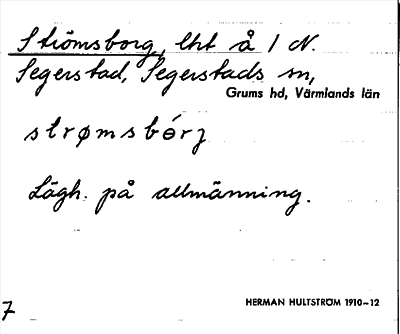 Strömsborg, lht å 1 N.
Segerstad, Segerstads sn,
Grums hd, Värmlands län
strømsbórj
Lägh. på allmänning.
HERMAN HULTSTRÖM 1910-12
7